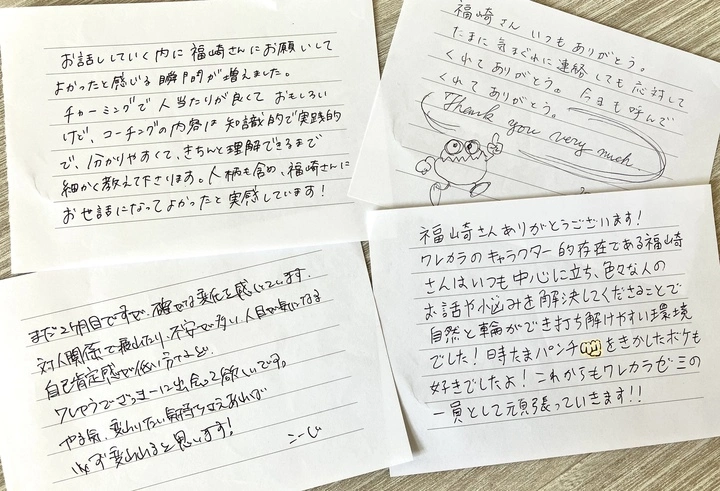 お話ししていく内に福崎さんにお願いして
よかったと感じる瞬間が増えました。
チャーミングで人当たりが良くておもしろい
けど、コーチングの内容は知識的で実践的
で、1分かりやすくて、きちんと理解できるまで
細かく教えて下さります。人柄も含め、福崎さんに
お世話になってよかったと実感しています!
福崎さん いつもありがとう。
たまに気まぐれに連絡しても応対して
くれてありがとう。今日も呼んで
くれてありがとう。
Thank you very much.
まだ2ヶ月目ですが、確かな変化を感じています。
対人関係で疲れたり、不安が多い、人目が気になる
自己肯定感が低い方など、
ワレカラでざっきーに出会って欲しいです。
やる気、変わりたい気持ちさえあれば
必ず変われると思います!
こーじ
福崎さんありがとうございます!
ワレカラのキャラクター的存在である福崎
さんはいつも中心に立ち、色々な人の
お話や小悩みを解決してくださることで
自然と輪ができ打ち解けやすい環境
でした!時たまパンチ👊をきかしたボケも
好きでしたよ!これからもワレカラゼミの
一員として頑張っていきます!!